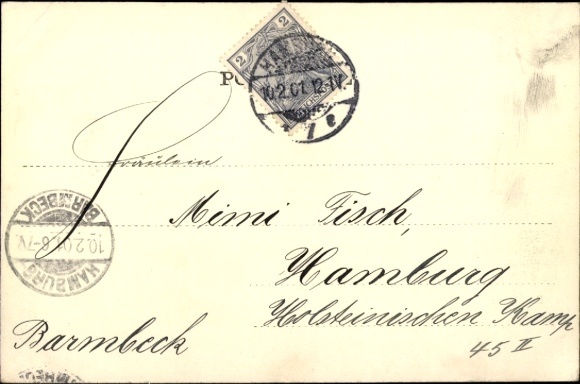 2 2
HAMBURG
10.2.01.12-1V.
1 e
Fräulein
Mimi Fisch,
Hamburg
Holsteinischen Kamp
45 II
Barmbeck
HAMBURG
10.2.01.6-7V.
BARMBECK